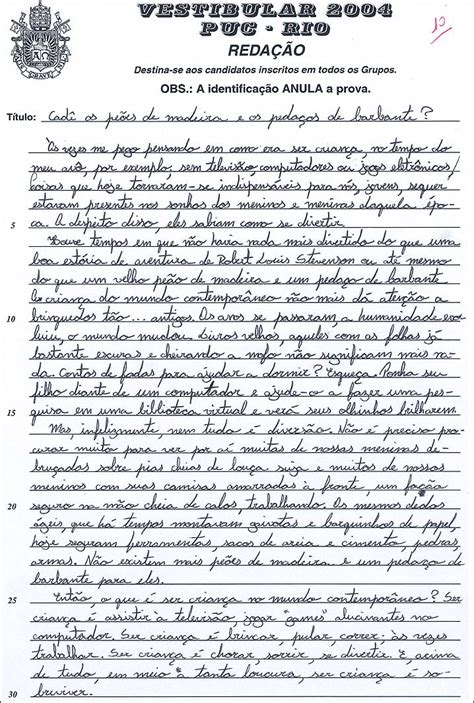 VESTIBULAR 2004
PUC - RIO
10
REDAÇÃO
Destina-se aos candidatos inscritos em todos os Grupos.
OBS.: A identificação ANULA a prova.
Título: Cadê os peões de madeira e os pedaços de barbante?
Às vezes me pego pensando em como era ser criança, no tempo do
meu avô, por exemplo, sem televisão, computadores ou jogos eletrônicos/
coisas que hoje tornaram-se indispensáveis para nós, jovens, sequer
estavam presentes nos sonhos dos meninos e meninas daquela épo-
5 ca. A despeito disso, eles sabiam como se divertir.
Houve tempos em que não havia nada mais divertido do que uma
boa estória de aventura de Robert Louis Stevenson ou até mesmo
do que um velho peão de madeira e um pedaço de barbante
a criança do mundo contemporâneo não mais dá atenção a
10 brinquedos tão... antigos. Os anos se passaram, a humanidade evo-
luiu, o mundo mudou. Livros velhos, aqueles com as folhas já
bastante escuras e cheirando a mofo não significam mais na-
da. Contos de fadas para ajudar a dormir? Esqueça. Ponha seu
filho diante de um computador e ajude-o a fazer uma pes-
15 quisa em uma biblioteca virtual e verá seus olhinhos brilharem.
Mas, infelizmente, nem tudo é diversão. Não é preciso pro-
curar muito para ver por aí muitas de nossas meninas de-
bruçadas sobre pias cheias de louça suja e muitos de nossos
meninos com suas camisas amarradas à fronte, um facão
20 seguro na mão cheia de calos, trabalhando. Os mesmos dedos
ágeis, que há tempos montavam gaivotas e barquinhos de papel,
hoje seguram ferramentas, sacos de areia e cimento, pedras,
armas. Não existem mais peões de madeira e um pedaço de
barbante para eles.
25 Então, o que é ser criança no mundo contemporâneo? Ser
criança é assistir à televisão, jogar "games" alucinantes no
computador. Ser criança é brincar, pular, correr; às vezes
trabalhar. Ser criança é chorar, sorrir, se divertir. E, acima
de tudo, em meio à tanta loucura, ser criança é so-
30 breviver.